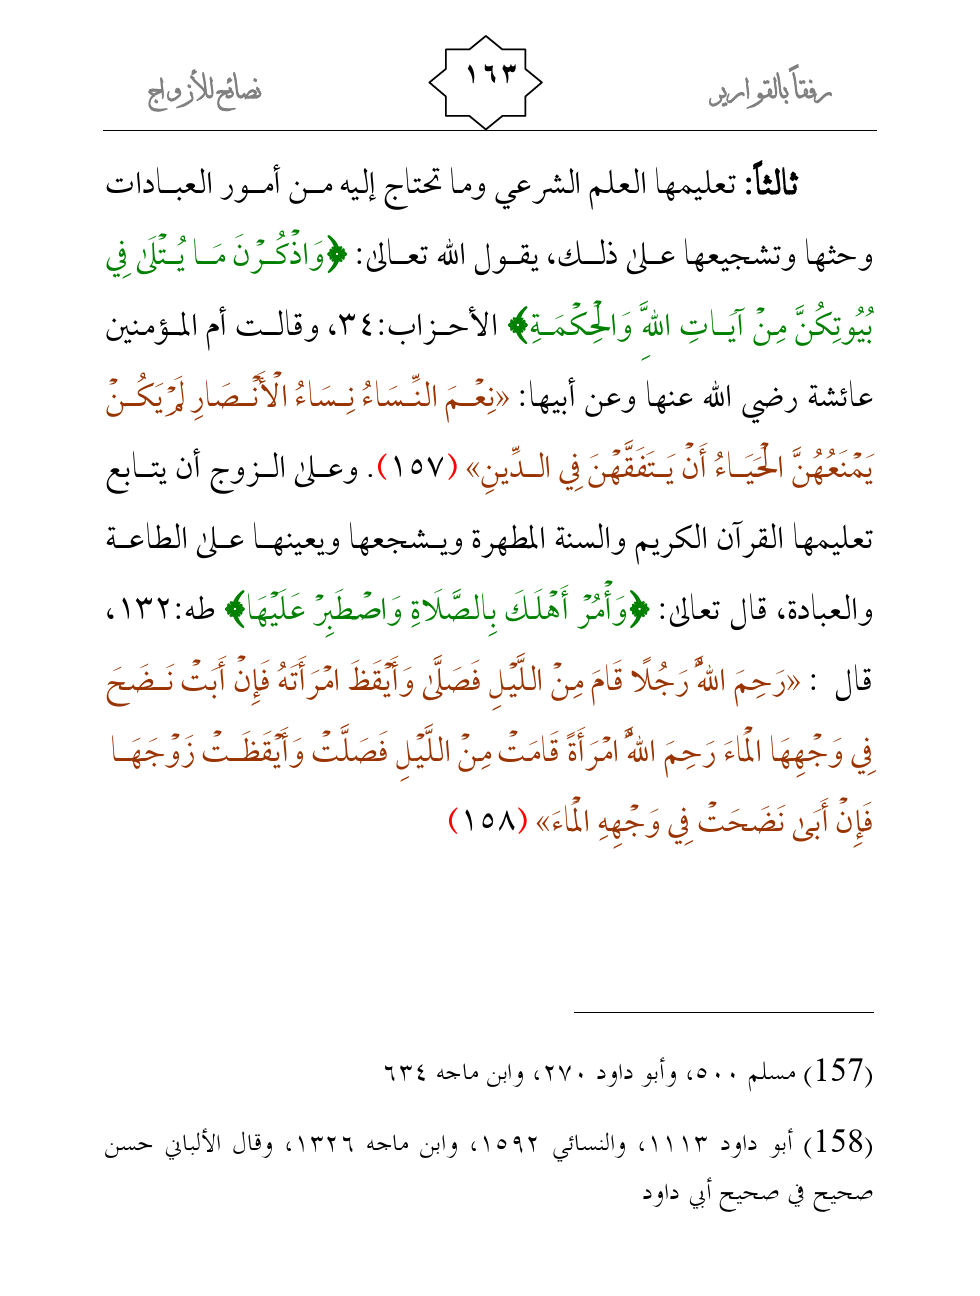 رفقاً بالقوارير
١٦٣
نصائح للأزواج
ثالثاً: تعليمها العلم الشرعي وما تحتاج إليه من أمور العبادات
وحثها وتشجيعها على ذلك، يقول الله تعالى: ﴿وَاذْكُرْنَ مَا يُتْلَى فِي
بُيُوتِكُنَّ مِنْ آيَاتِ اللَّهِ وَالْحِكْمَةِ﴾ الأحزاب:٣٤، وقالت أم المؤمنين
عائشة رضي الله عنها وعن أبيها: «نِعْمَ النِّسَاءُ نِسَاءُ الْأَنْصَارِ لَمْ يَكُنْ
يَمْنَعُهُنَّ الْحَيَاءُ أَنْ يَتَفَقَّهْنَ فِي الدِّينِ» (١٥٧). وعلى الزوج أن يتابع
تعليمها القرآن الكريم والسنة المطهرة ويشجعها ويعينها على الطاعة
والعبادة، قال تعالى: ﴿وَأْمُرْ أَهْلَكَ بِالصَّلَاةِ وَاصْطَبِرْ عَلَيْهَا﴾ طه:١٣٢،
قال : «رَحِمَ اللهُ رَجُلًا قَامَ مِنْ اللَّيْلِ فَصَلَّى وَأَيْقَظَ امْرَأَتَهُ فَإِنْ أَبَتْ نَضَحَ
فِي وَجْهِهَا الْمَاءَ رَحِمَ اللهُ امْرَأَةً قَامَتْ مِنْ اللَّيْلِ فَصَلَّتْ وَأَيْقَظَتْ زَوْجَهَا
فَإِنْ أَبَى نَضَحَتْ فِي وَجْهِهِ الْمَاءَ» (١٥٨)
(157) مسلم ٥٠٠، وأبو داود ٢٧٠، وابن ماجه ٦٣٤
(158) أبو داود ١١١٣، والنسائي ١٥٩٢، وابن ماجه ١٣٢٦، وقال الألباني حسن
صحيح في صحيح أبي داود